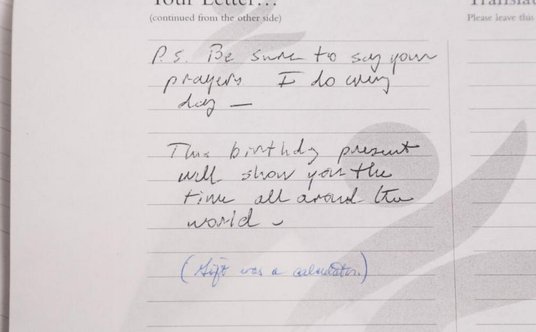 Your Letter...
(continued from the other side)
Translat
Please leave this
P.S. Be sure to say your
prayers I do every
day —
This birthday present
will show you the
time all around the
world –
(Gift was a calculator.)